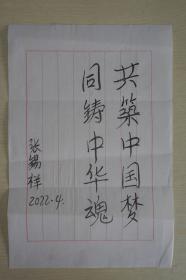 共築中国梦
同铸中华魂
张锡样
2022.4.